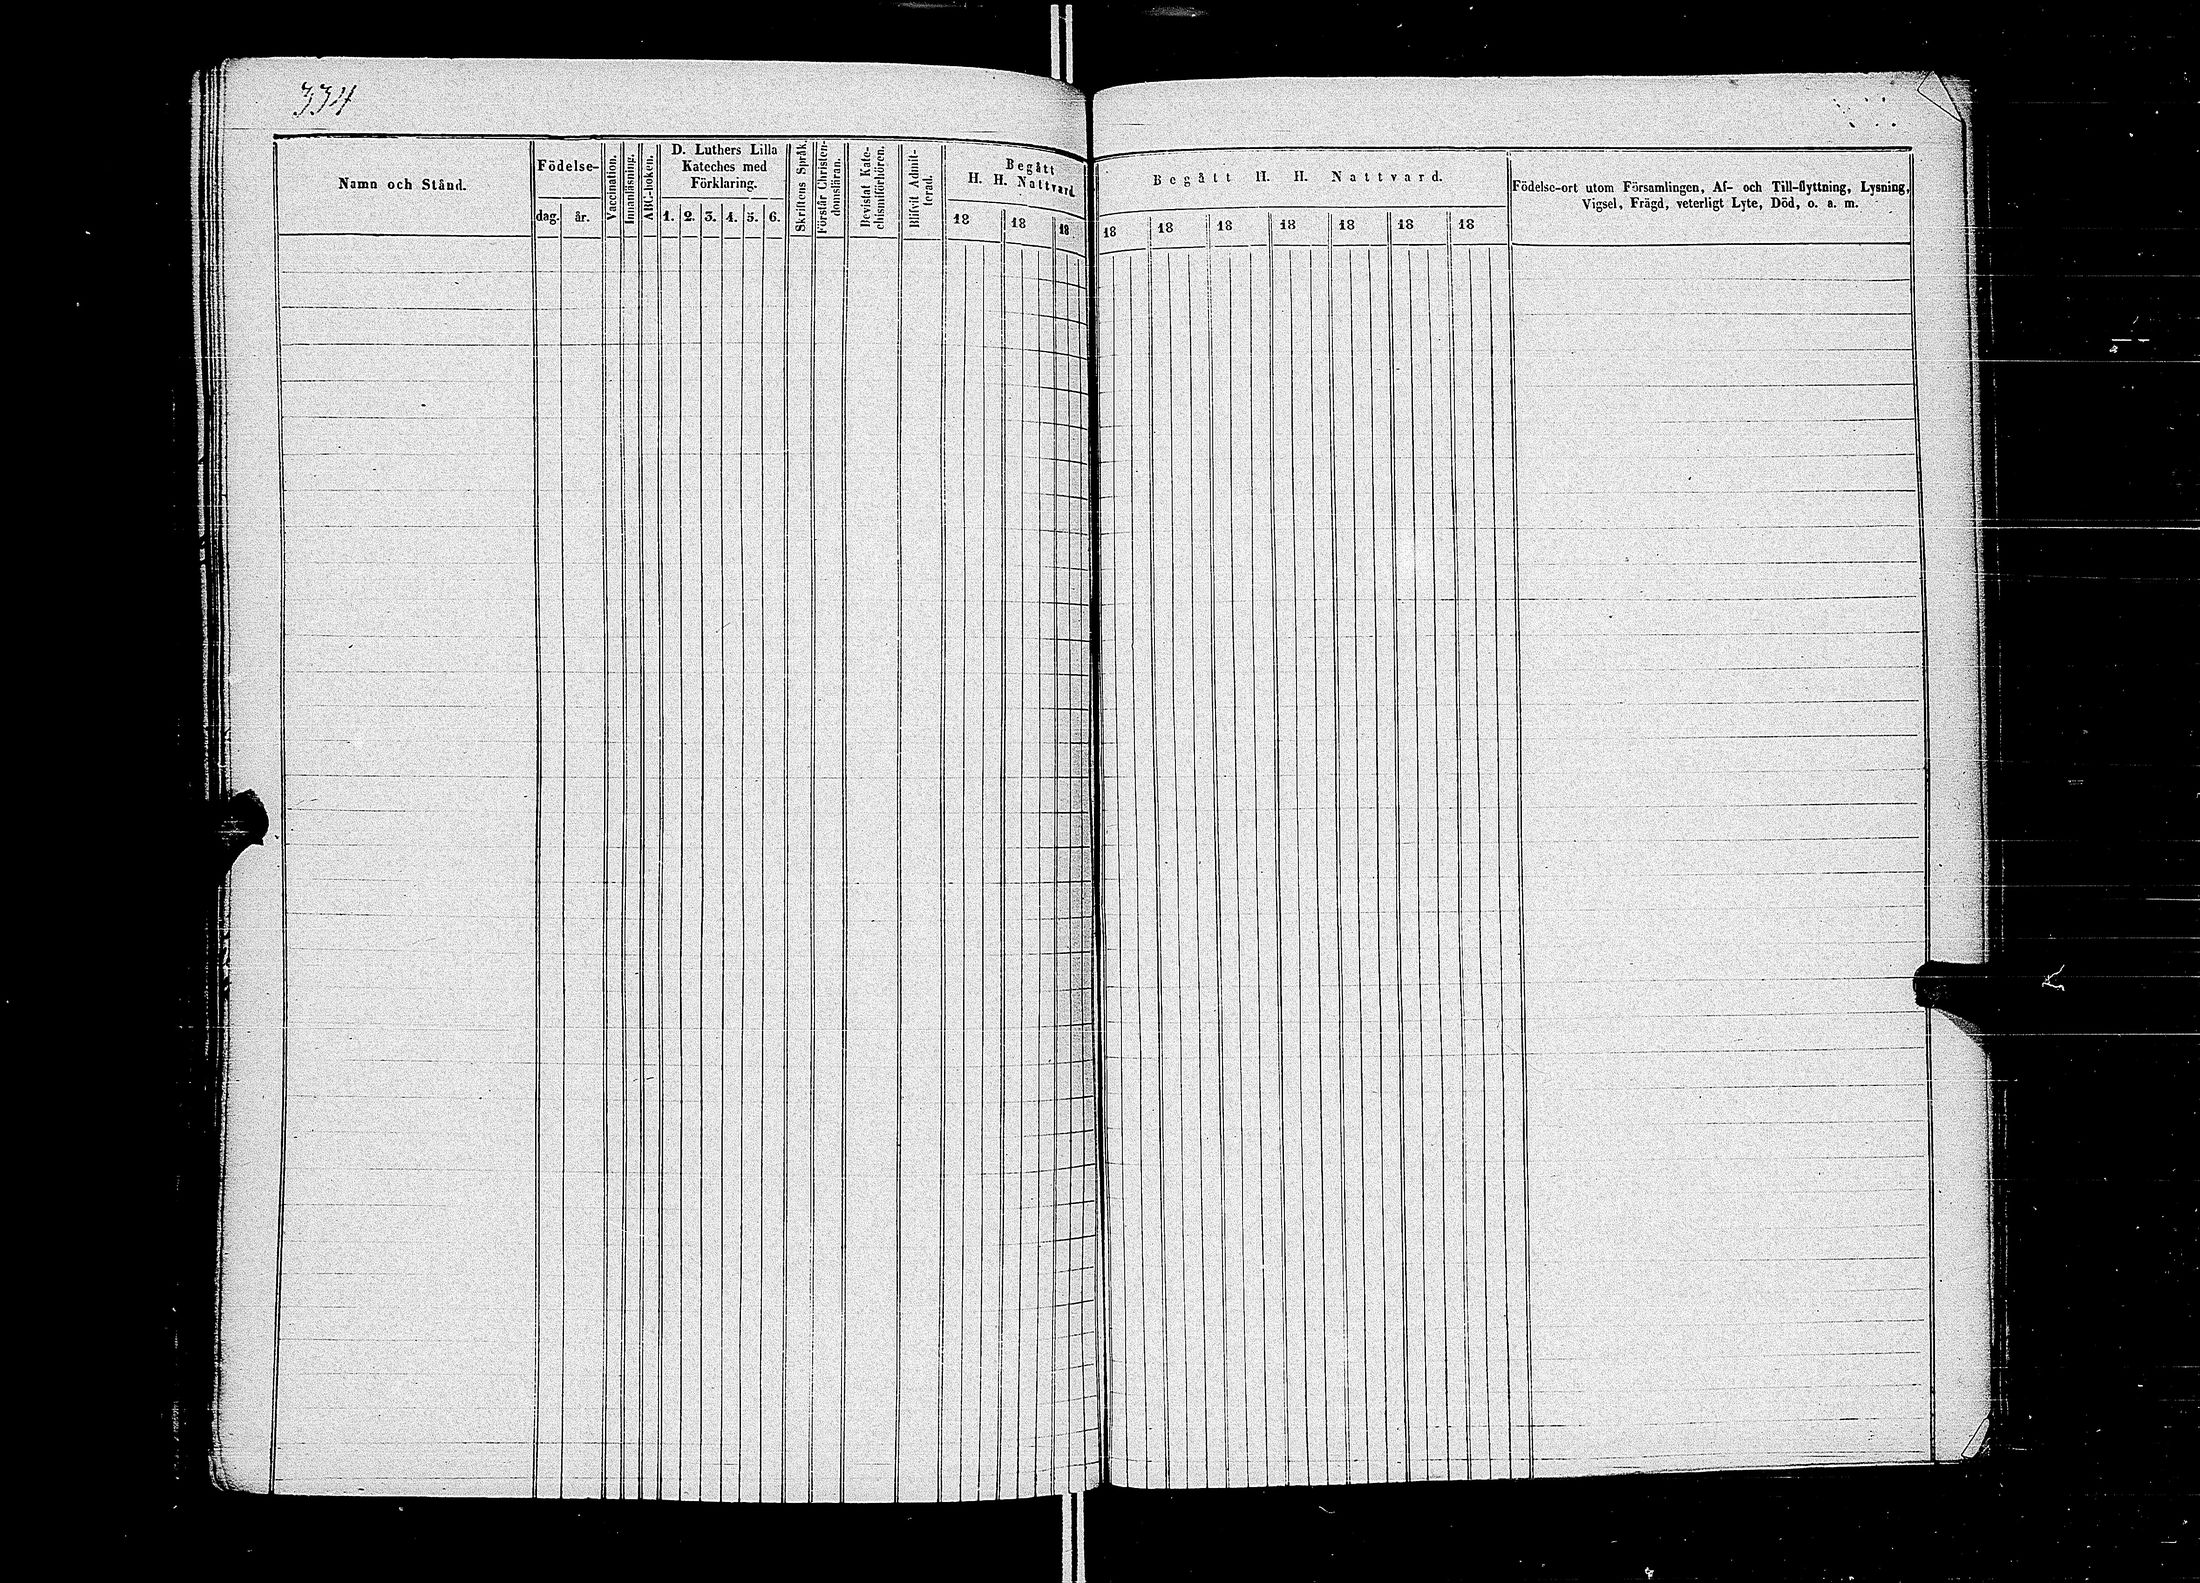 334
Namn och Stånd.
Födelse-
dag.
år.
Vaccination.
Innanläsning.
ABC-boken.
D. Luthers Lilla
Kateches med
Förklaring.
1. 2. 3. 4. 5. 6.
Skriftens Språk.
Förstår Christen-
domsläran.
Bevistat Kate-
chismiförhören.
Blifvit Admit-
terad.
Begått
H. H. Nattvard.
18 18 18
Begått H. H. Nattvard.
18 18 18 18 18 18 18
Födelse-ort utom Församlingen, Af- och Till-flyttning, Lysning,
Vigsel, Frägd, veterligt Lyte, Död, o. a. m.